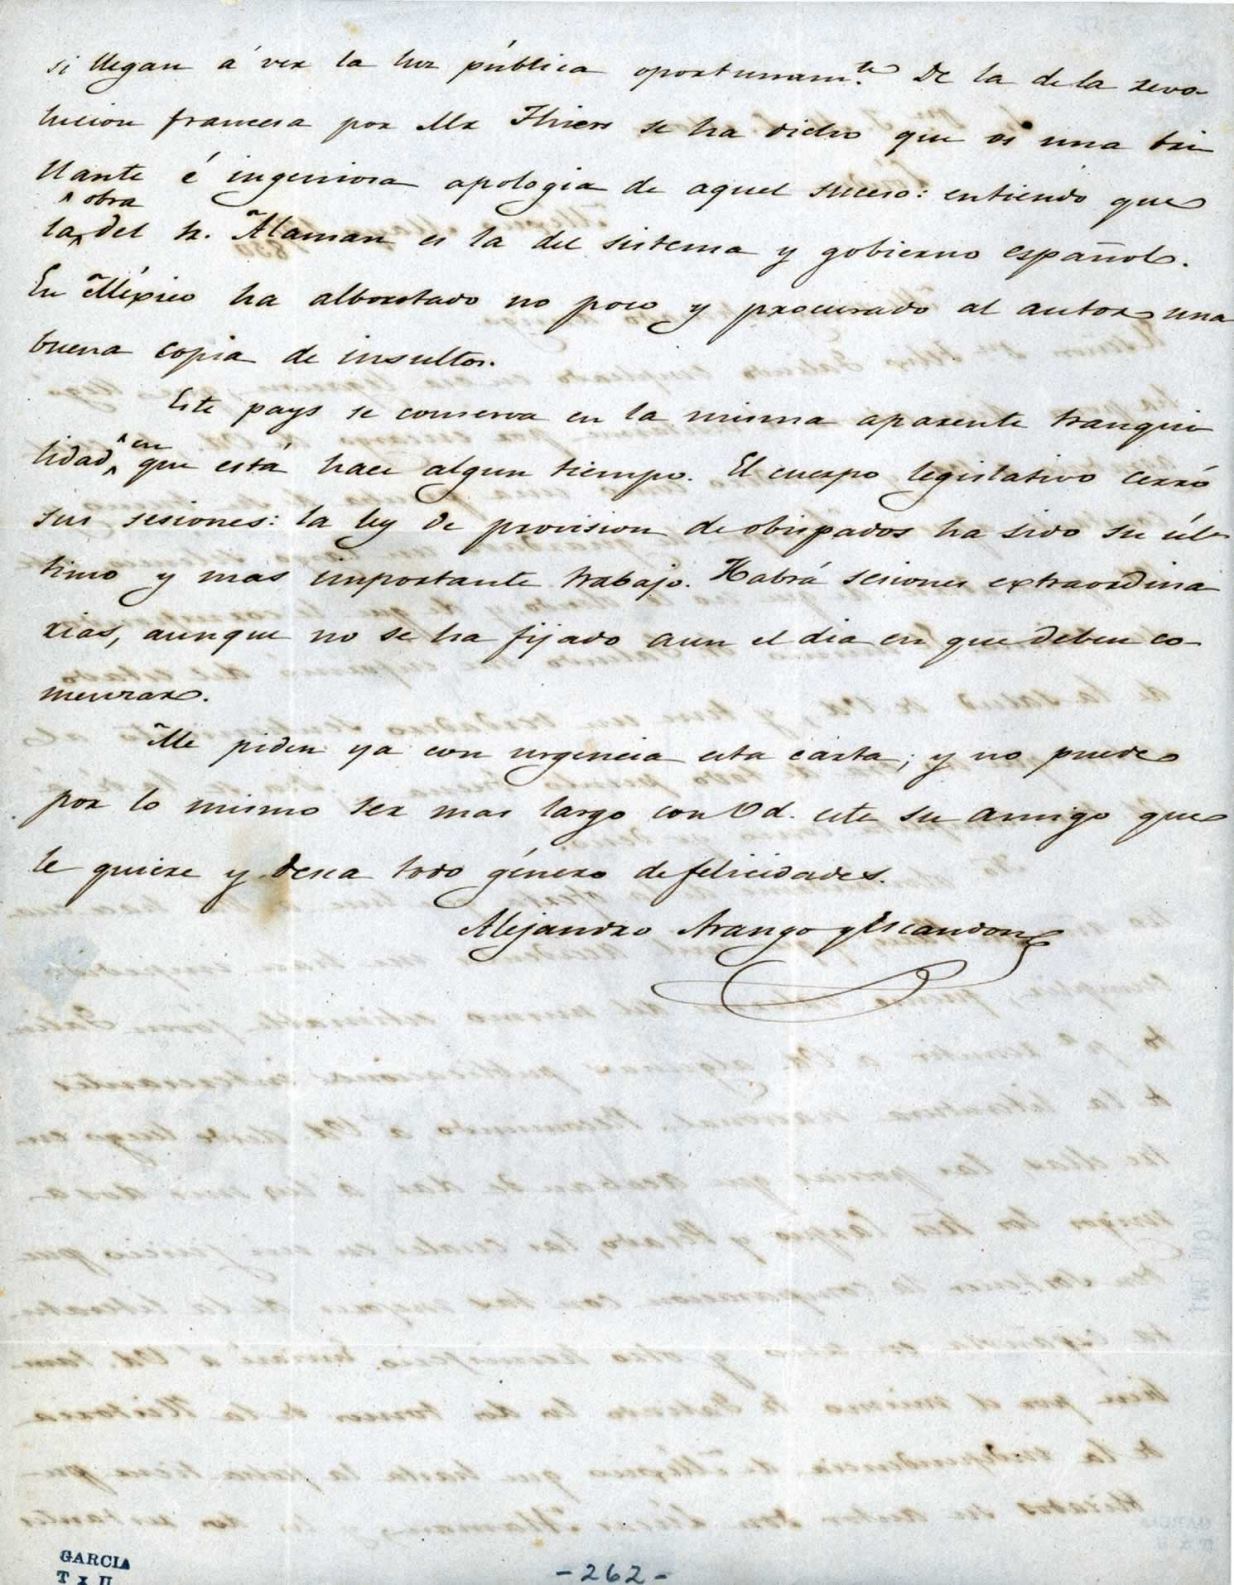 si llegan á ver la luz pública oportunam.te De la de la revo-
lucion francesa por Mr Thiers se ha dicho que es una bri
llante é ingeniosa apologia de aquel suceso: entiendo que
la ^obra del Sr. Alaman es la del sistema y gobierno español.
En México ha alborotado no poco y procurado al autor una
buena copia de insultos.
Este pays se conserva en la misma aparente tranqui
lidad ^en que está hace algun tiempo. El cuerpo legislativo cerró
sus sesiones: la ley de provision de obispados ha sido su úl-
timo y mas importante trabajo. Habrá sesiones extraordina
rias, aunque no se ha fijado aun el dia en que deben co-
menzar.
Me piden ya con urgencia esta carta; y no puede
por lo mismo ser mas largo con Vd. este su amigo que
le quiere y desea todo género de felicidades.
Alejandro Arango y Escandon
GARCIA
- 262 -